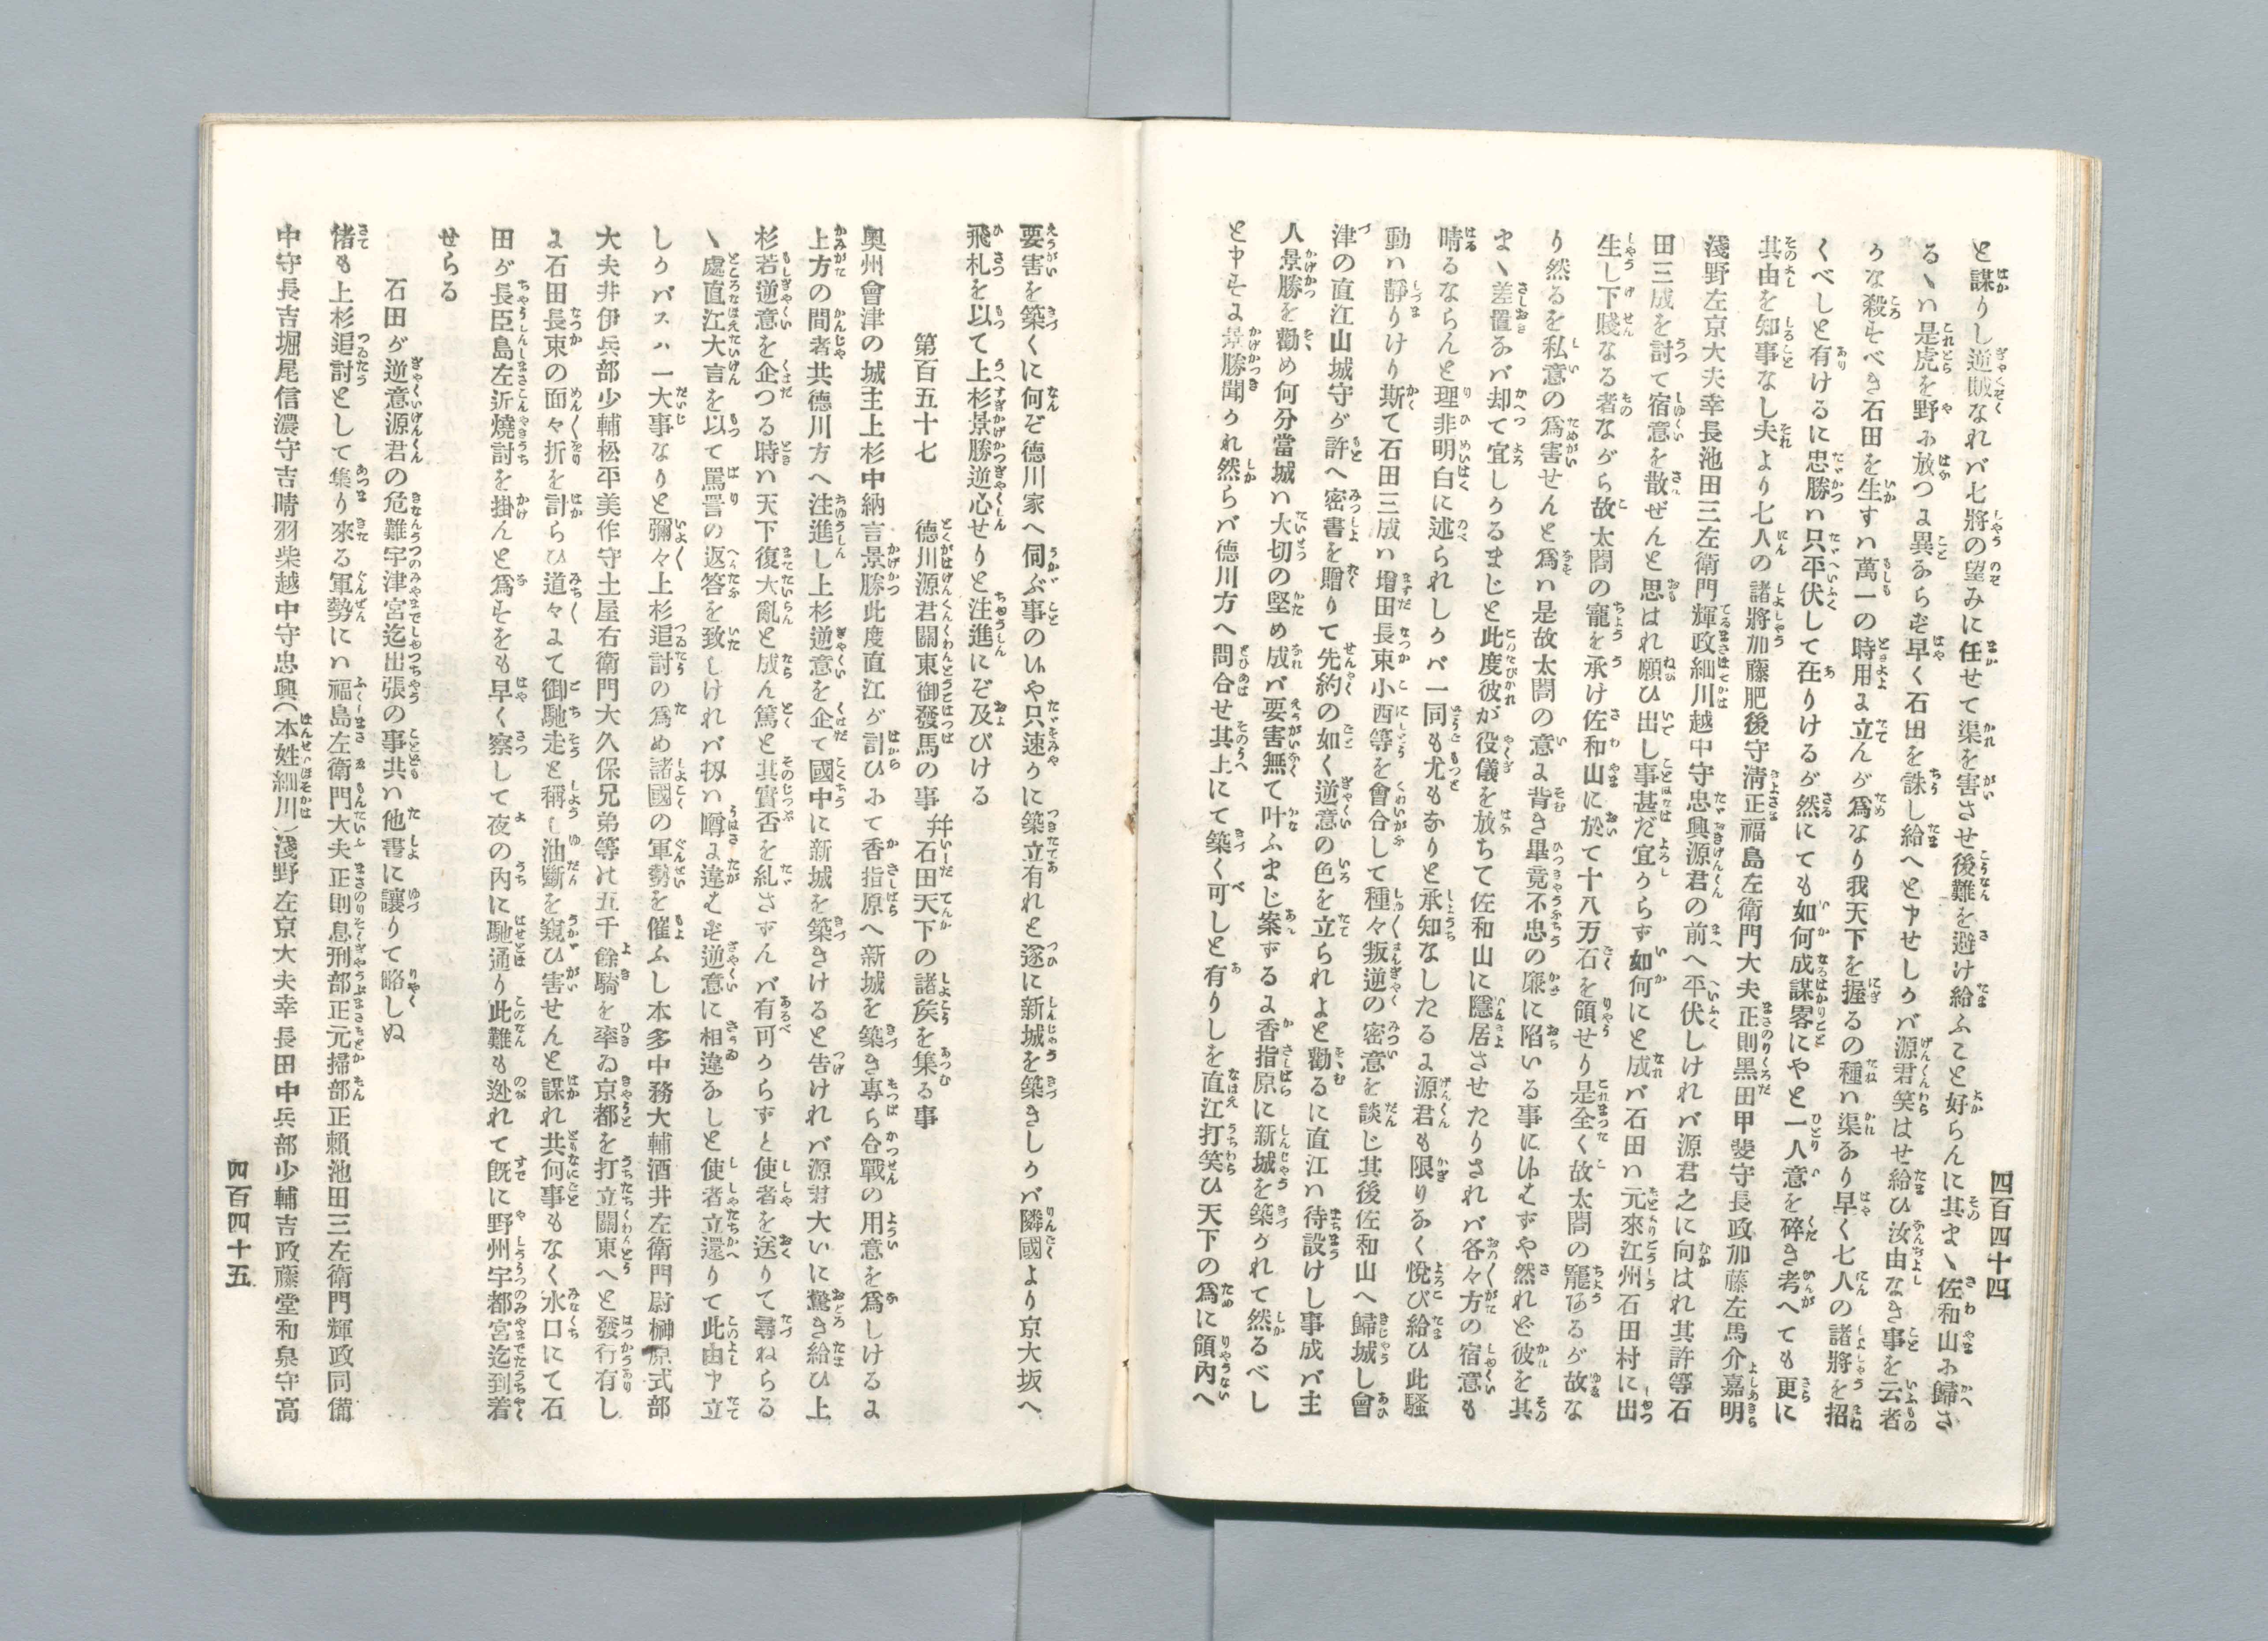 四百四十四
と謀りし逆賊なれバ七將の望みに任せて渠を害させ後難を避け給ふこと好らんに其まゝ佐和山ふ歸さ
るゝハ是虎を野ふ放つよ異ならず早く石田を誅し給へと申せしかバ源君笑はせ給ひ汝由なき事を云者
かな殺すべき石田を生すハ萬一の時用よ立んが爲なり我天下を握るの種ハ渠なり早く七人の諸將を招
くべしと有けるに忠勝ハ只平伏して在りけるが然にても如何成謀畧にやと一人意を碎き考へても更に
其由を知事なし夫より七人の諸將加藤肥後守淸正福島左衛門大夫正則黒田甲斐守長政加藤左馬介嘉明
淺野左京大夫幸長池田三左衛門輝政細川越中守忠興源君の前へ平伏しけれバ源君之に向はれ其許等石
田三成を討て宿意を散ぜんと思はれ願ひ出し事甚だ宜からず如何にと成バ石田ハ元來江州石田村に出
生し下賤なる者ながら故太閤の寵を承け佐和山に於て十八万石を領せり是全く故太閤の寵あるが故な
り然るを私意の爲害せんと爲ハ是故太閤の意よ背き畢竟不忠の廉に陷いる事にいむずや然れど彼を其
まゝ差置なバ却て宜しかるまじと此度彼が役儀を放ちて佐和山に隱居させたりされバ各々方の宿意も
晴るならんと理非明白に述られしかバ一同も尤もなりと承知なしたるよ源君も限りなく悅び給ひ此騒
動ハ靜りけり斯て石田三成ハ增田長束小西等を會合して種々叛逆の密意を談じ其後佐和山へ歸城し會
津の直江山城守が許へ密書を贈りて先約の如く逆意の色を立られよと勸るに直江ハ待設けし事成バ主
人景勝を勸め何分當城ハ大切の堅め成バ要害無て叶ふまじ案ずるよ香指原に新城を築かれて然るべし
と申すよ景勝聞かれ然らバ德川方へ問合せ其上にて築く可しと有りしを直江打笑ひ天下の爲に領內へ
要害を築くに何ぞ德川家へ伺ぶ事のいや只速かに築立有れと遂に新城を築きしかバ隣國より京大坂へ
飛札を以て上杉景勝逆心せりと注進にぞ及びける
第百五十七　德川源君關東御發馬の事　幷石田天下の諸矦を集る事
奧州會津の城主上杉中納言景勝此度直江が計ひふて香指原へ新城を築き專ら合戰の用意を爲しけるよ
上方の間者共德川方へ注進し上杉逆意を企て國中に新城を築きけると告けれバ源君大いに驚き給ひ上
杉若逆意を企つる時ハ天下復大亂と成ん篤と其實否を糺さずんバ有可からずと使者を送りて尋ねらる
ゝ處直江大言を以て罵詈の返答を致しけれバ扨ハ噂よ違むず逆意に相違なしと使者立還りて此由申立
しかバスハ一大事なりと彌々上杉追討の爲め諸國の軍勢を催ふし本多中務大輔酒井左衛門尉榊原式部
大夫井伊兵部少輔松平美作守土屋右衛門大久保兄弟等其五千餘騎を率ゐ京都を打立關東へと發行有し
よ石田長束の面々折を計らひ道々よて御馳走と稱し油斷を窺ひ害せんと謀れ共何事もなく水口にて石
田が長臣島左近燒討を掛んと爲すをも早く察して夜の內に馳通り此難も迯れて旣に野州宇都宮迄到着
せらる
石田が逆意源君の危難宇津宮迄出張の事共ハ他書に讓りて略しぬ
偖も上杉追討として集り來る軍勢にハ福島左衛門大夫正則息刑部正元掃部正賴池田三左衛門輝政同備
中守長吉堀尾信濃守吉晴羽柴越中守忠興（本姓細川）淺野左京大夫幸長田中兵部少輔吉政藤堂和泉守高
四百四十五